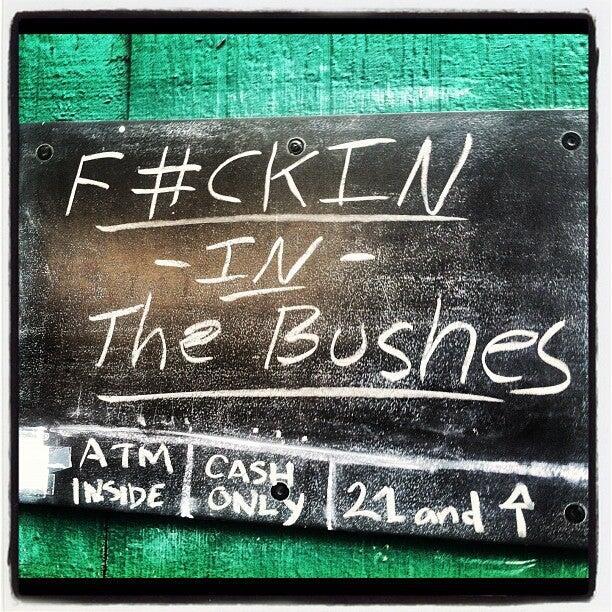 F#CKIN
- IN -
The Bushes
ATM INSIDE
CASH ONLY
21 and ↑